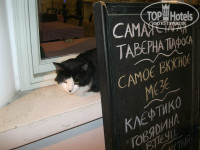 TopHotels
САМАЯ СТАРАЯ
ТАВЕРНА ПАФОСА
САМОЕ ВКУСНОЕ
МЕЗЕ
КЛЕФТИКО
ГОВЯДИНА